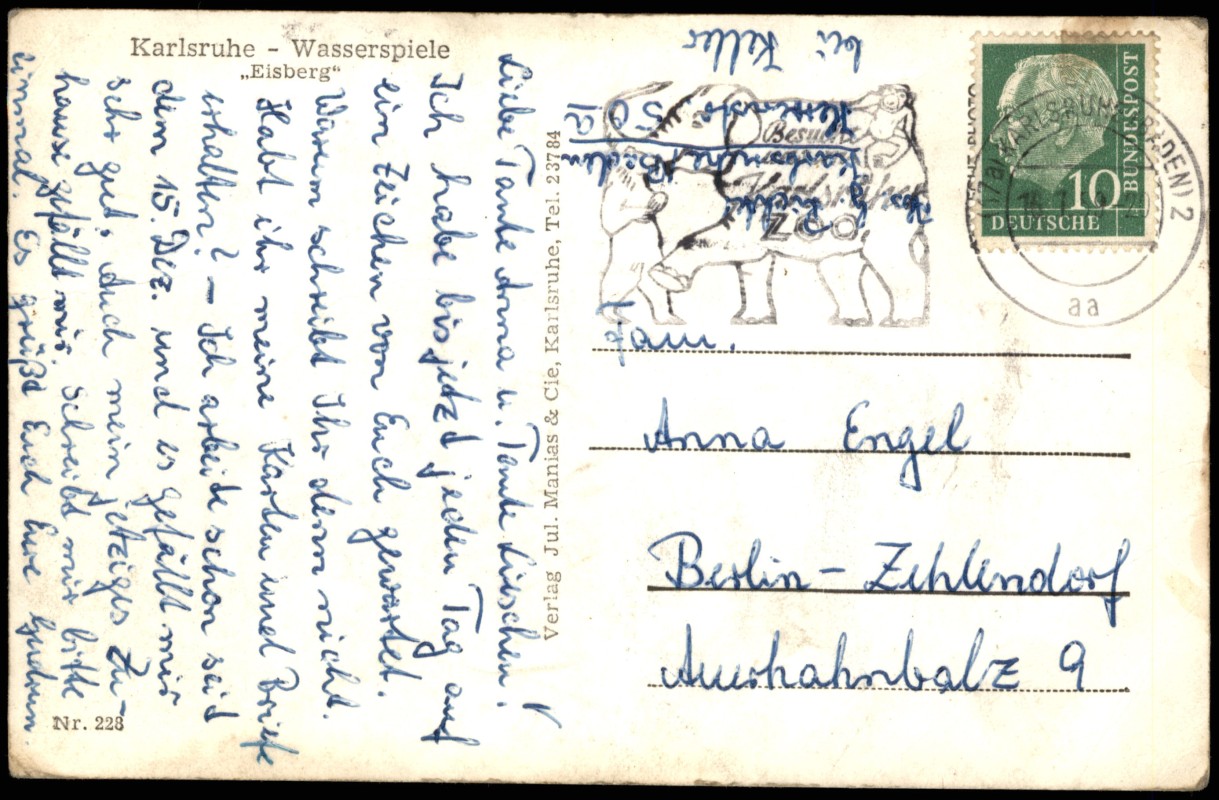 Karlsruhe - Wasserspiele
„Eisberg“
Liebe Tante Anna u. Tante Lieschen!
Ich habe bis jetzt jeden Tag auf
ein Zeichen von Euch gewartet.
Warum schreibt Ihr denn nicht.
Habt ihr meine Karten und Briefe
erhalten? – Ich arbeite schon seit
dem 15. Dez. und es gefällt mir
sehr gut. Auch mein jetziges Zu-
hause gefällt mir. Schreibt mir bitte
einmal. Es grüßt Euch Eure Gudrun.
Nr. 228
Verlag Jul. Manias & Cie, Karlsruhe, Tel. 23784
Karlsruhe/Baden
Herrenstr. 50a
bei Keller
Besucht
Karlsruher
ZOO
KARLSRUHE (BADEN) 2
aa
DEUTSCHE
BUNDESPOST
10
Fam.
Anna Engel
Berlin – Zehlendorf
Auerhahnbalz 9